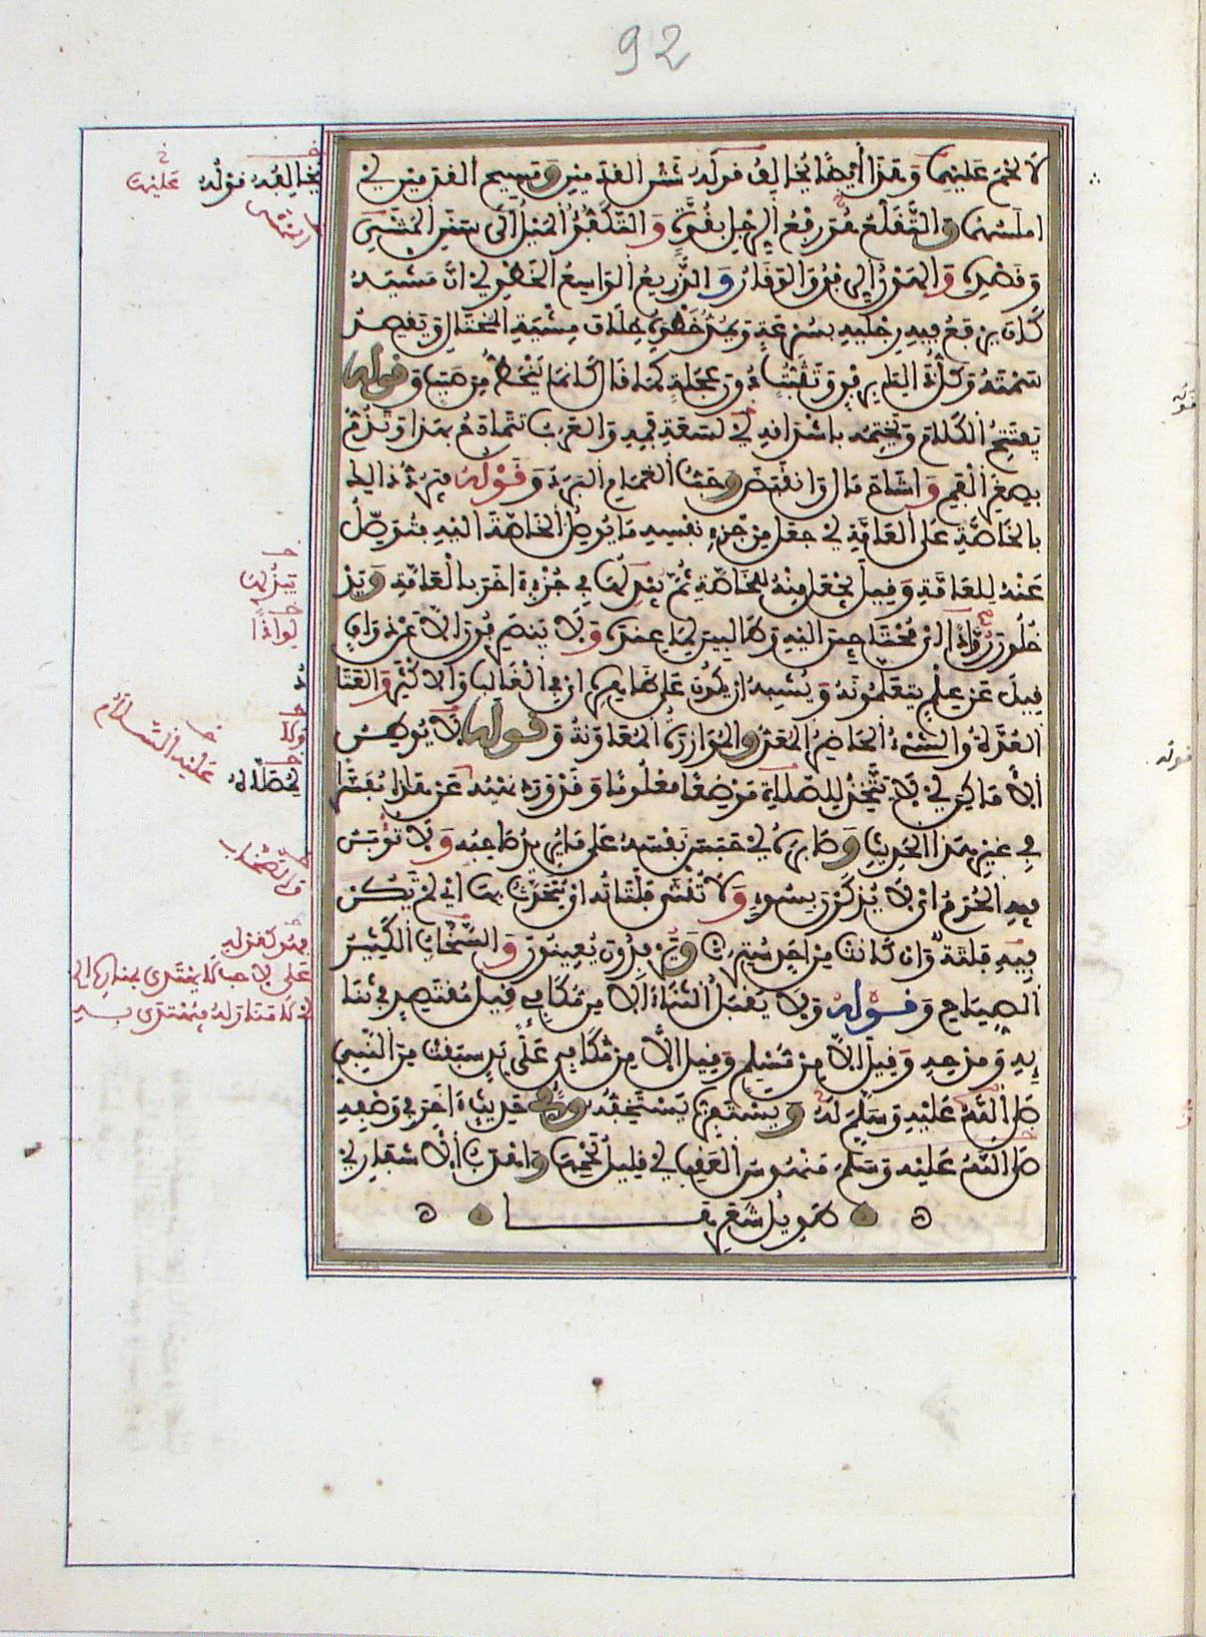 92
لا لحم عليهما وهذا أيضا يخالف قوله شثن القدمين ومسيح القدمين أي
املسهما والتقلع هو رفع الرجل بقوة والتكفؤ الميل الى سنن المشي
وقصده والهون الرفق والوقار والذريع الواسع الخطو أي ان مشيه
كان يرفع فيه رجليه بسرعة ويمد خطوه خلاف مشية المختال ويقصد
سمته وكل ذلك برفق وتثبت دون عجلة كما قال كانما ينحط من صبب وقوله
يفتتح الكلام ويختمه باشداقه أي لسعة فمه والعرب تتمادح بهذا وتذم
بصغر الفم واشاح مال وانقبض وحب الغمام البرد وقوله فيرد ذالك
بالخاصة على العامة أي جعل من جزء نفسه ما يوصل الخاصة اليه فتوصل
عنه للعامة وقيل يجعل منه للخاصة ثم يبدلها في جزء اخر بالعامة ويد
خلون روادا اي محتاجين اليه وطالبين لما عنده ولا ينصرفون الا عن ذواق
قيل عن علم يتعلمونه ويشبه ان يكون على ظاهره اي في الغالب والاكثر والعتا
العدة والشيء الحاضر المعد والموازرة المعاونة وقوله لا يوطن
الاماكن أي لا يتخذ لمصلاه موضعا معلوما وقد ورد نهيه عن هذا مفسرا
في غير هذا الحديث وصابره أي حبس نفسه على ما يريد صاحبه ولا تؤبن
فيه الحرم اي لا يذكرن بسوء ولا تنثى فلتاته اي يتحدث بها اي لم تكن
فيه فلتة وان كانت من احد سترت ويرفدون يعينون والسخاب الكثير
الصياح وقوله ولا يقبل الثناء الا من مكافئ قيل مقتصد في ثنا
ئه ومدحه وقيل الا من مسلم وقيل الا من مكافئ على يد سبقت من النبي
صلى الله عليه وسلم له ويستفزه يستخفه وفي حديث اخر في وصفه
صلى الله عليه وسلم منهوس العقب أي قليل لحمها واهدب الاشفار أي
طويل شعرها
يخالفه قوله
عليها
يبدلها
لواذا
د
وكل
عليه السلام
لمصلاه
والصخاب
قوله
قوله